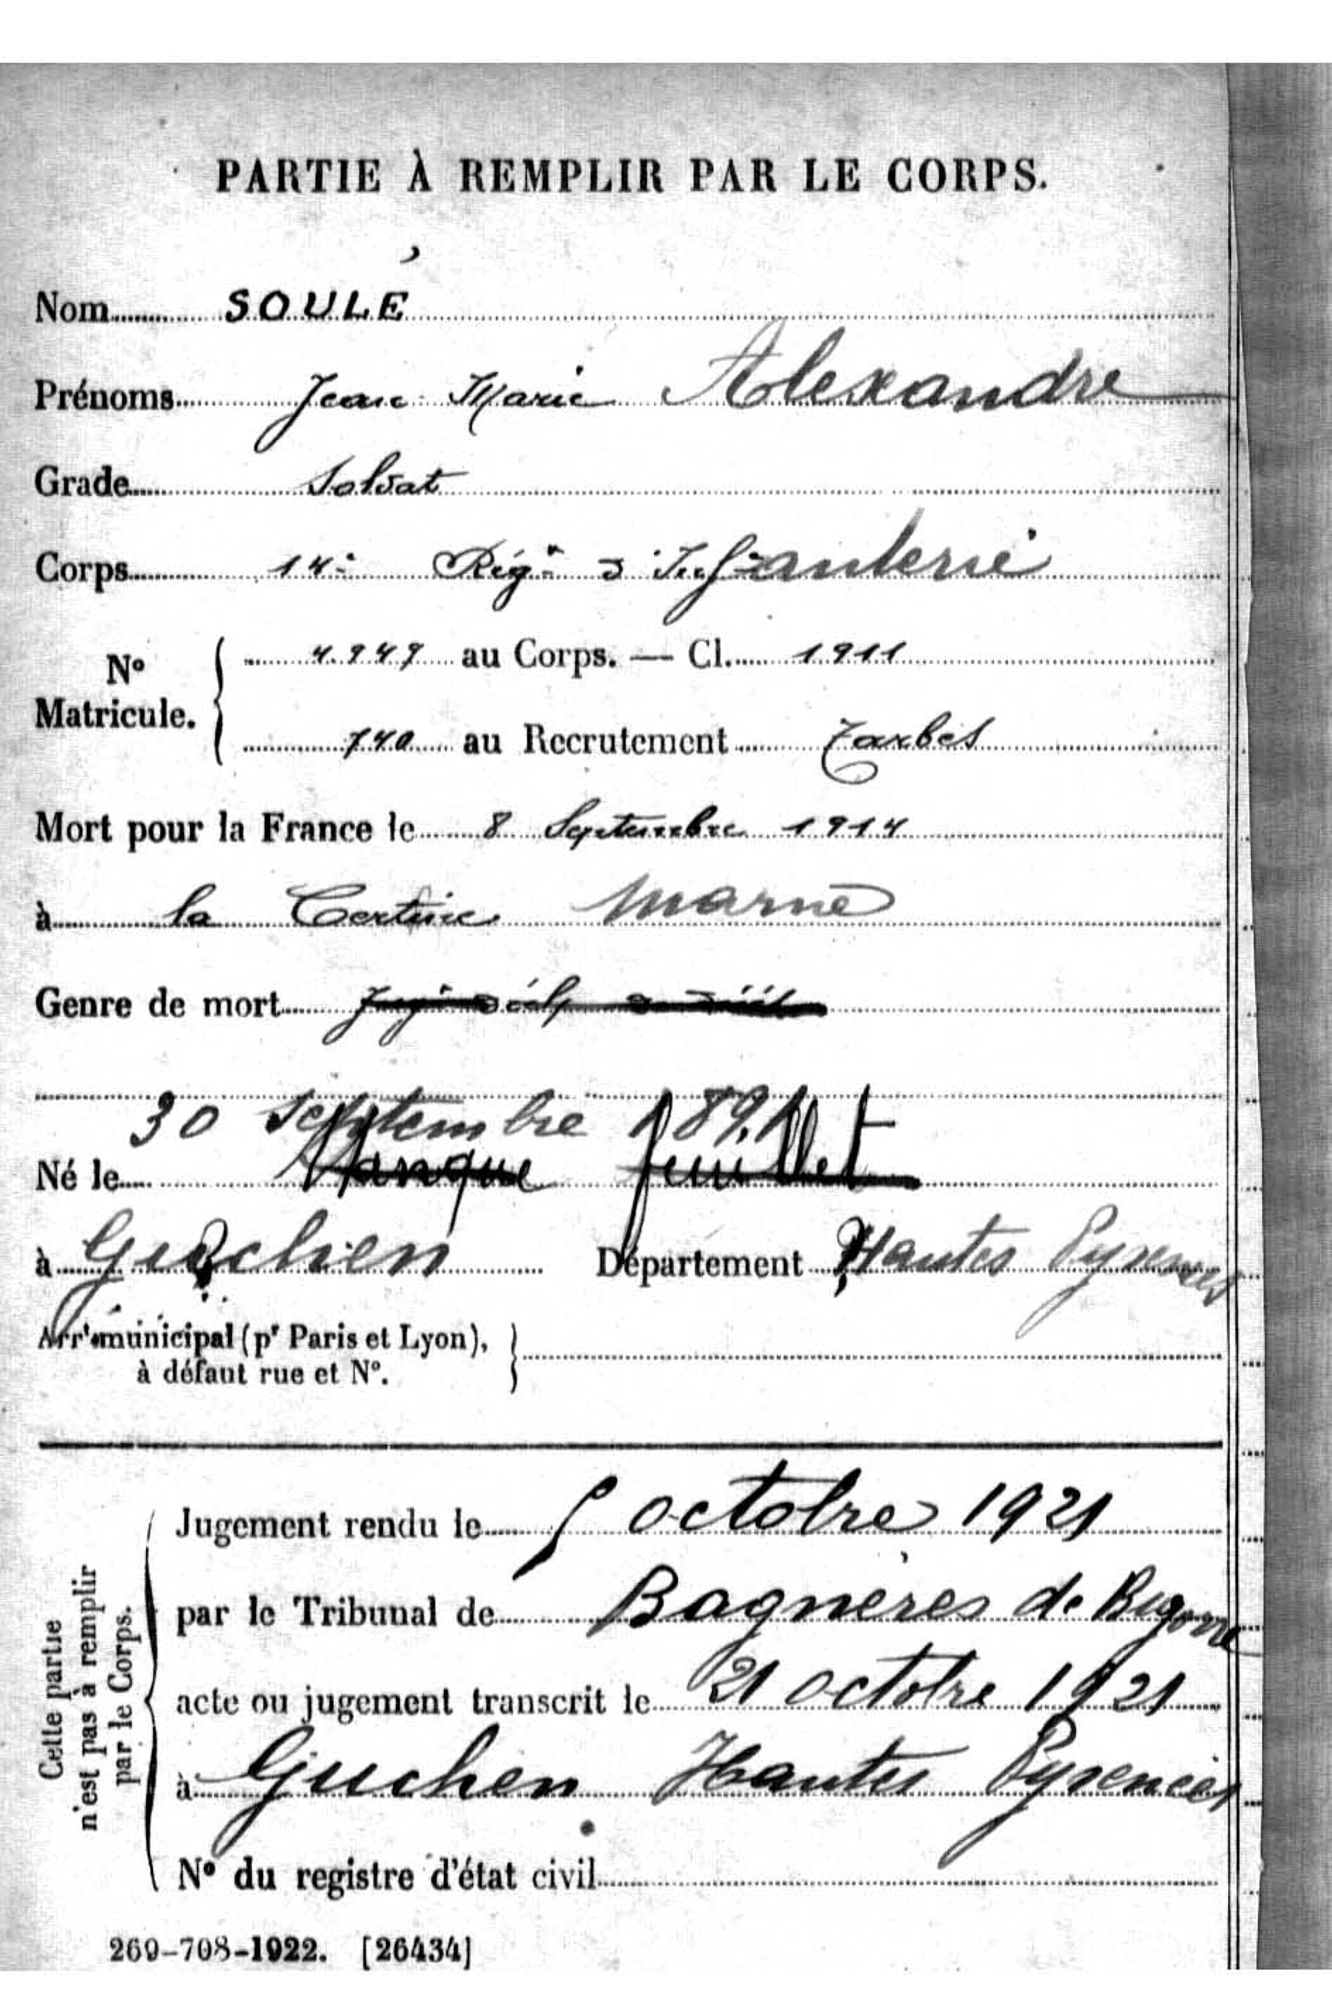 PARTIE À REMPLIR PAR LE CORPS.
Nom SOULÉ
Prénoms Jean Marie Alexandre
Grade Soldat
Corps 14e Régt d'Infanterie
No Matricule. 4.949 au Corps. — Cl. 1911
740 au Recrutement Tarbes
Mort pour la France le 8 Septembre 1914
à la Certine Marne
Genre de mort
30 Septembre 1891
Né le Manque feuillet
à Guchen Département Hautes Pyrenees
Arrt municipal (pr Paris et Lyon),
à défaut rue et No.
Cette partie
n'est pas à remplir
par le Corps.
Jugement rendu le 5 octobre 1921
par le Tribunal de Bagnères de Bigorre
acte ou jugement transcrit le 21 octobre 1921
à Guchen Hautes Pyrenees
No du registre d'état civil
269-708-1922. [26434]